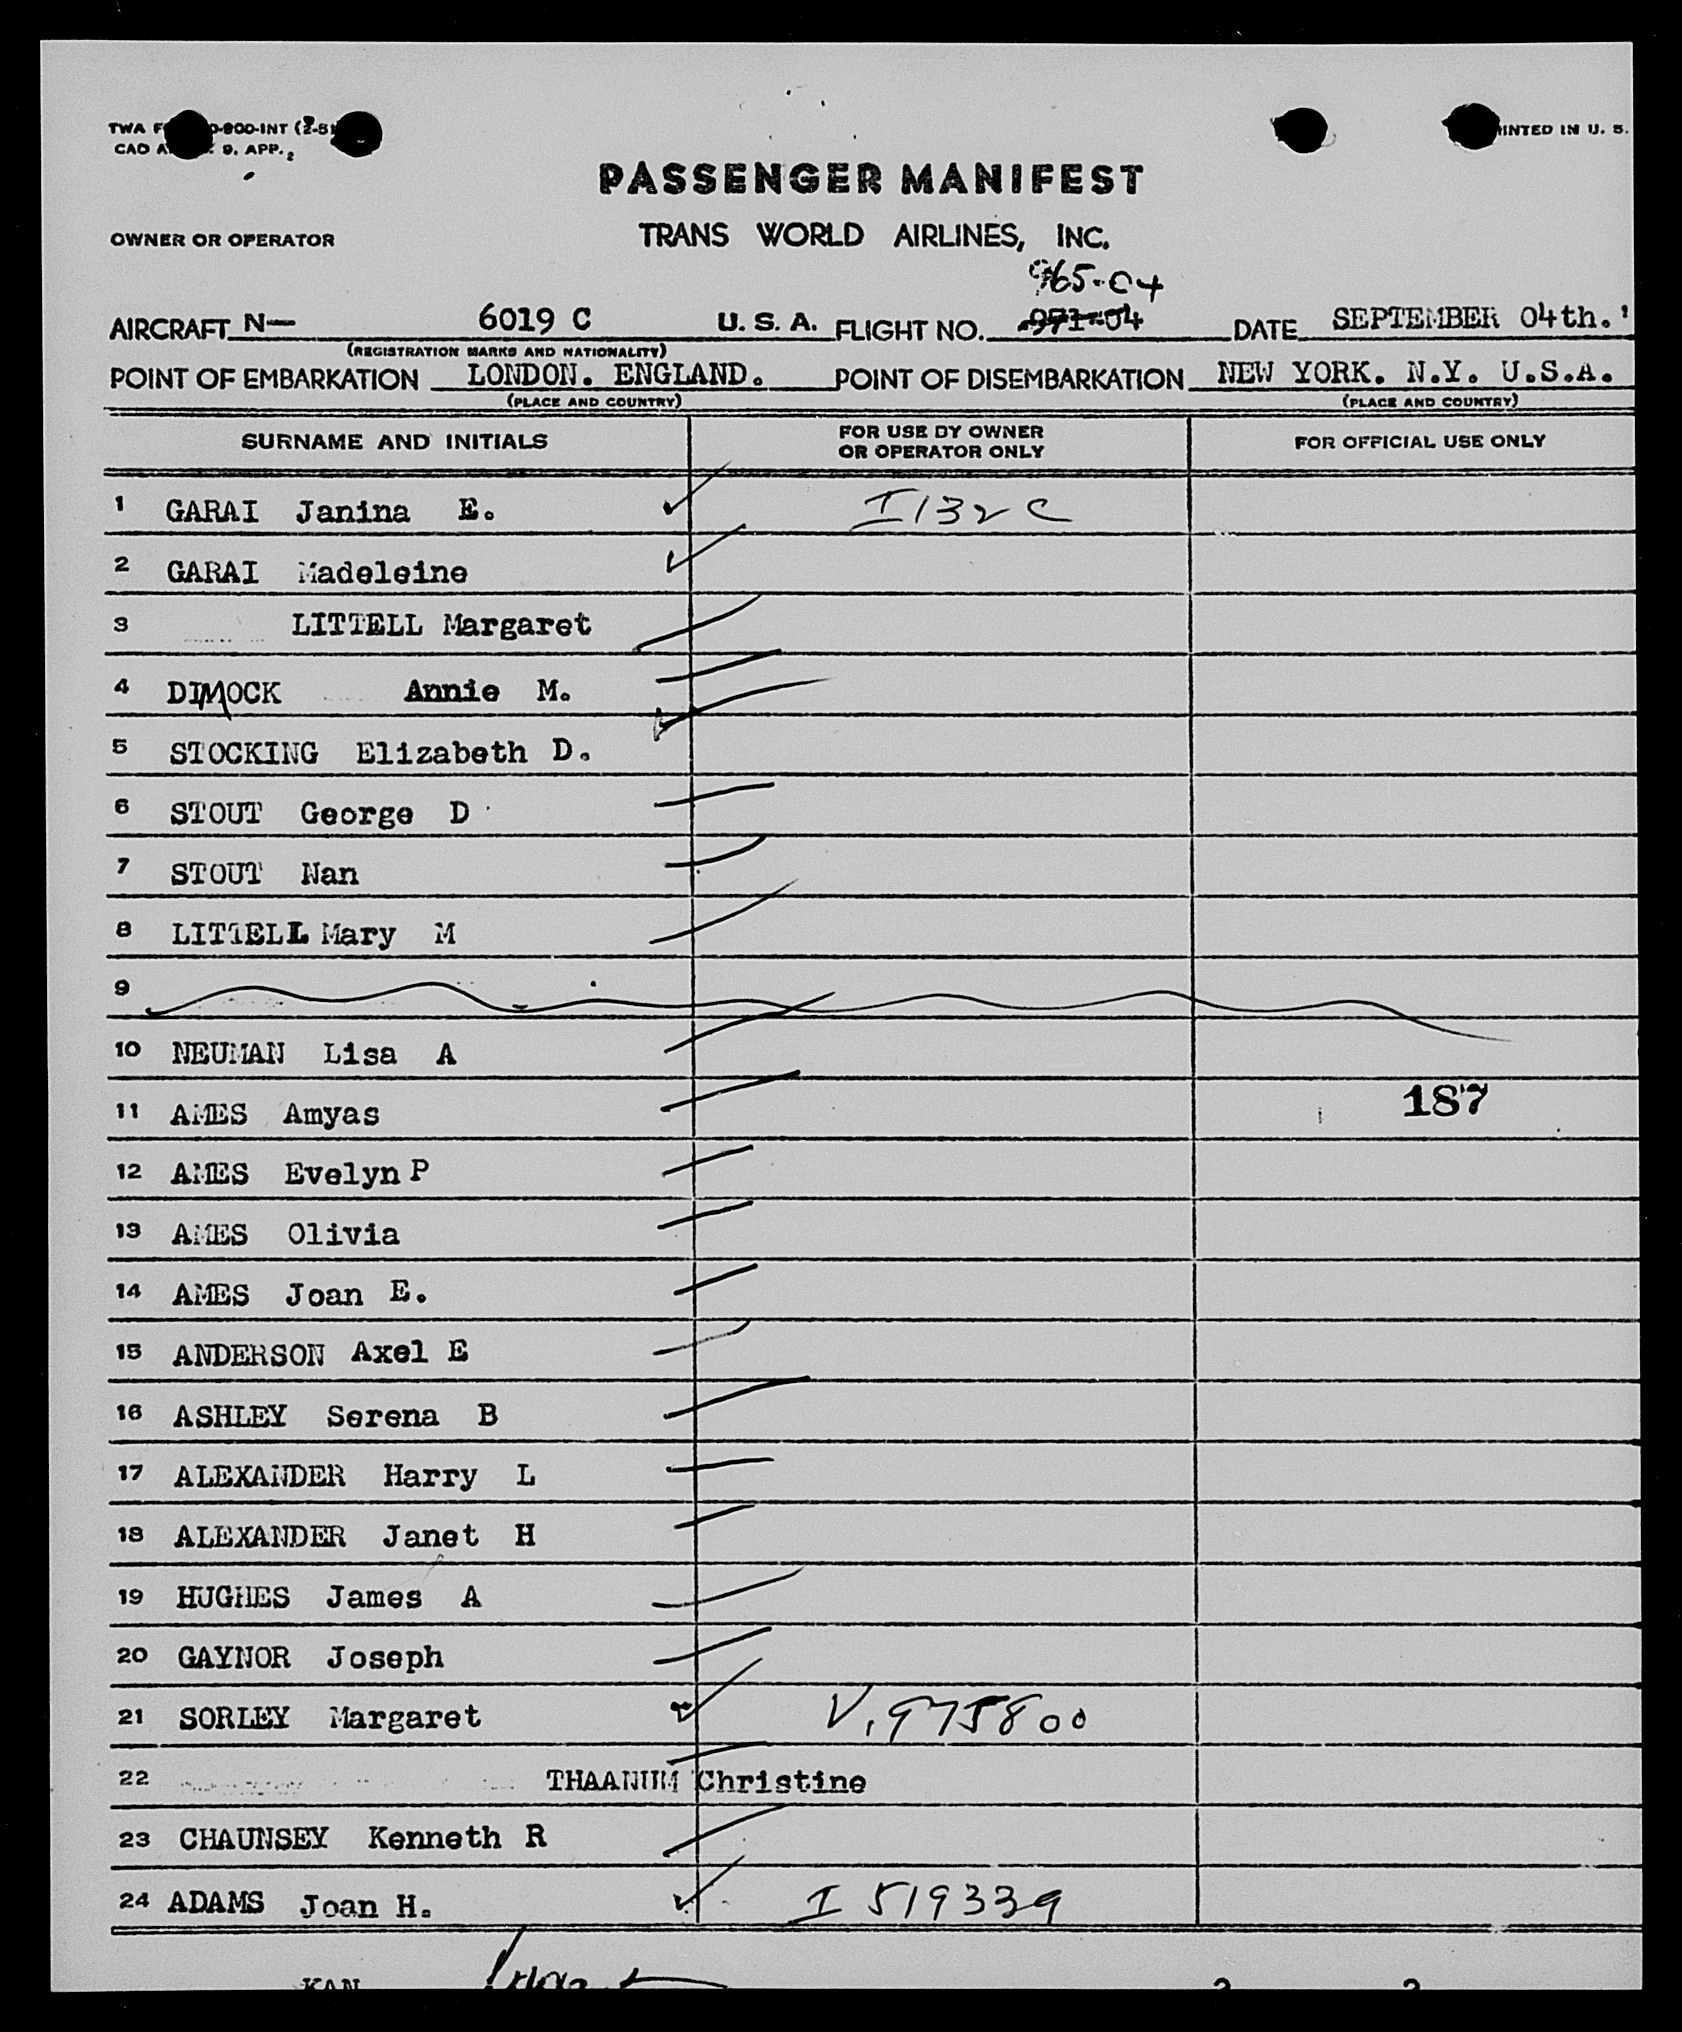 TWA F 0-800-INT (2-5
CAD A 9. APP. 2
INTED IN U. S.
PASSENGER MANIFEST
OWNER OR OPERATOR
TRANS WORLD AIRLINES, INC.
965-04
AIRCRAFT N— 6019 C U. S. A. FLIGHT NO. 971-04 DATE SEPTEMBER 04th.'
(REGISTRATION MARKS AND NATIONALITY)
POINT OF EMBARKATION LONDON. ENGLAND. POINT OF DISEMBARKATION NEW YORK. N.Y. U.S.A.
(PLACE AND COUNTRY) (PLACE AND COUNTRY)
SURNAME AND INITIALS FOR USE BY OWNER OR OPERATOR ONLY FOR OFFICIAL USE ONLY
1 GARAI Janina E. I 132 C
2 GARAI Madeleine
3 LITTELL Margaret
4 DIMOCK Annie M.
5 STOCKING Elizabeth D.
6 STOUT George D
7 STOUT Nan
8 LITTELL Mary M
9
10 NEUMAN Lisa A
11 AMES Amyas 187
12 AMES Evelyn P
13 AMES Olivia
14 AMES Joan E.
15 ANDERSON Axel E
16 ASHLEY Serena B
17 ALEXANDER Harry L
18 ALEXANDER Janet H
19 HUGHES James A
20 GAYNOR Joseph
21 SORLEY Margaret V. 975800
22 THAANUM Christine
23 CHAUNSEY Kenneth R
24 ADAMS Joan H. I 519339
KAN